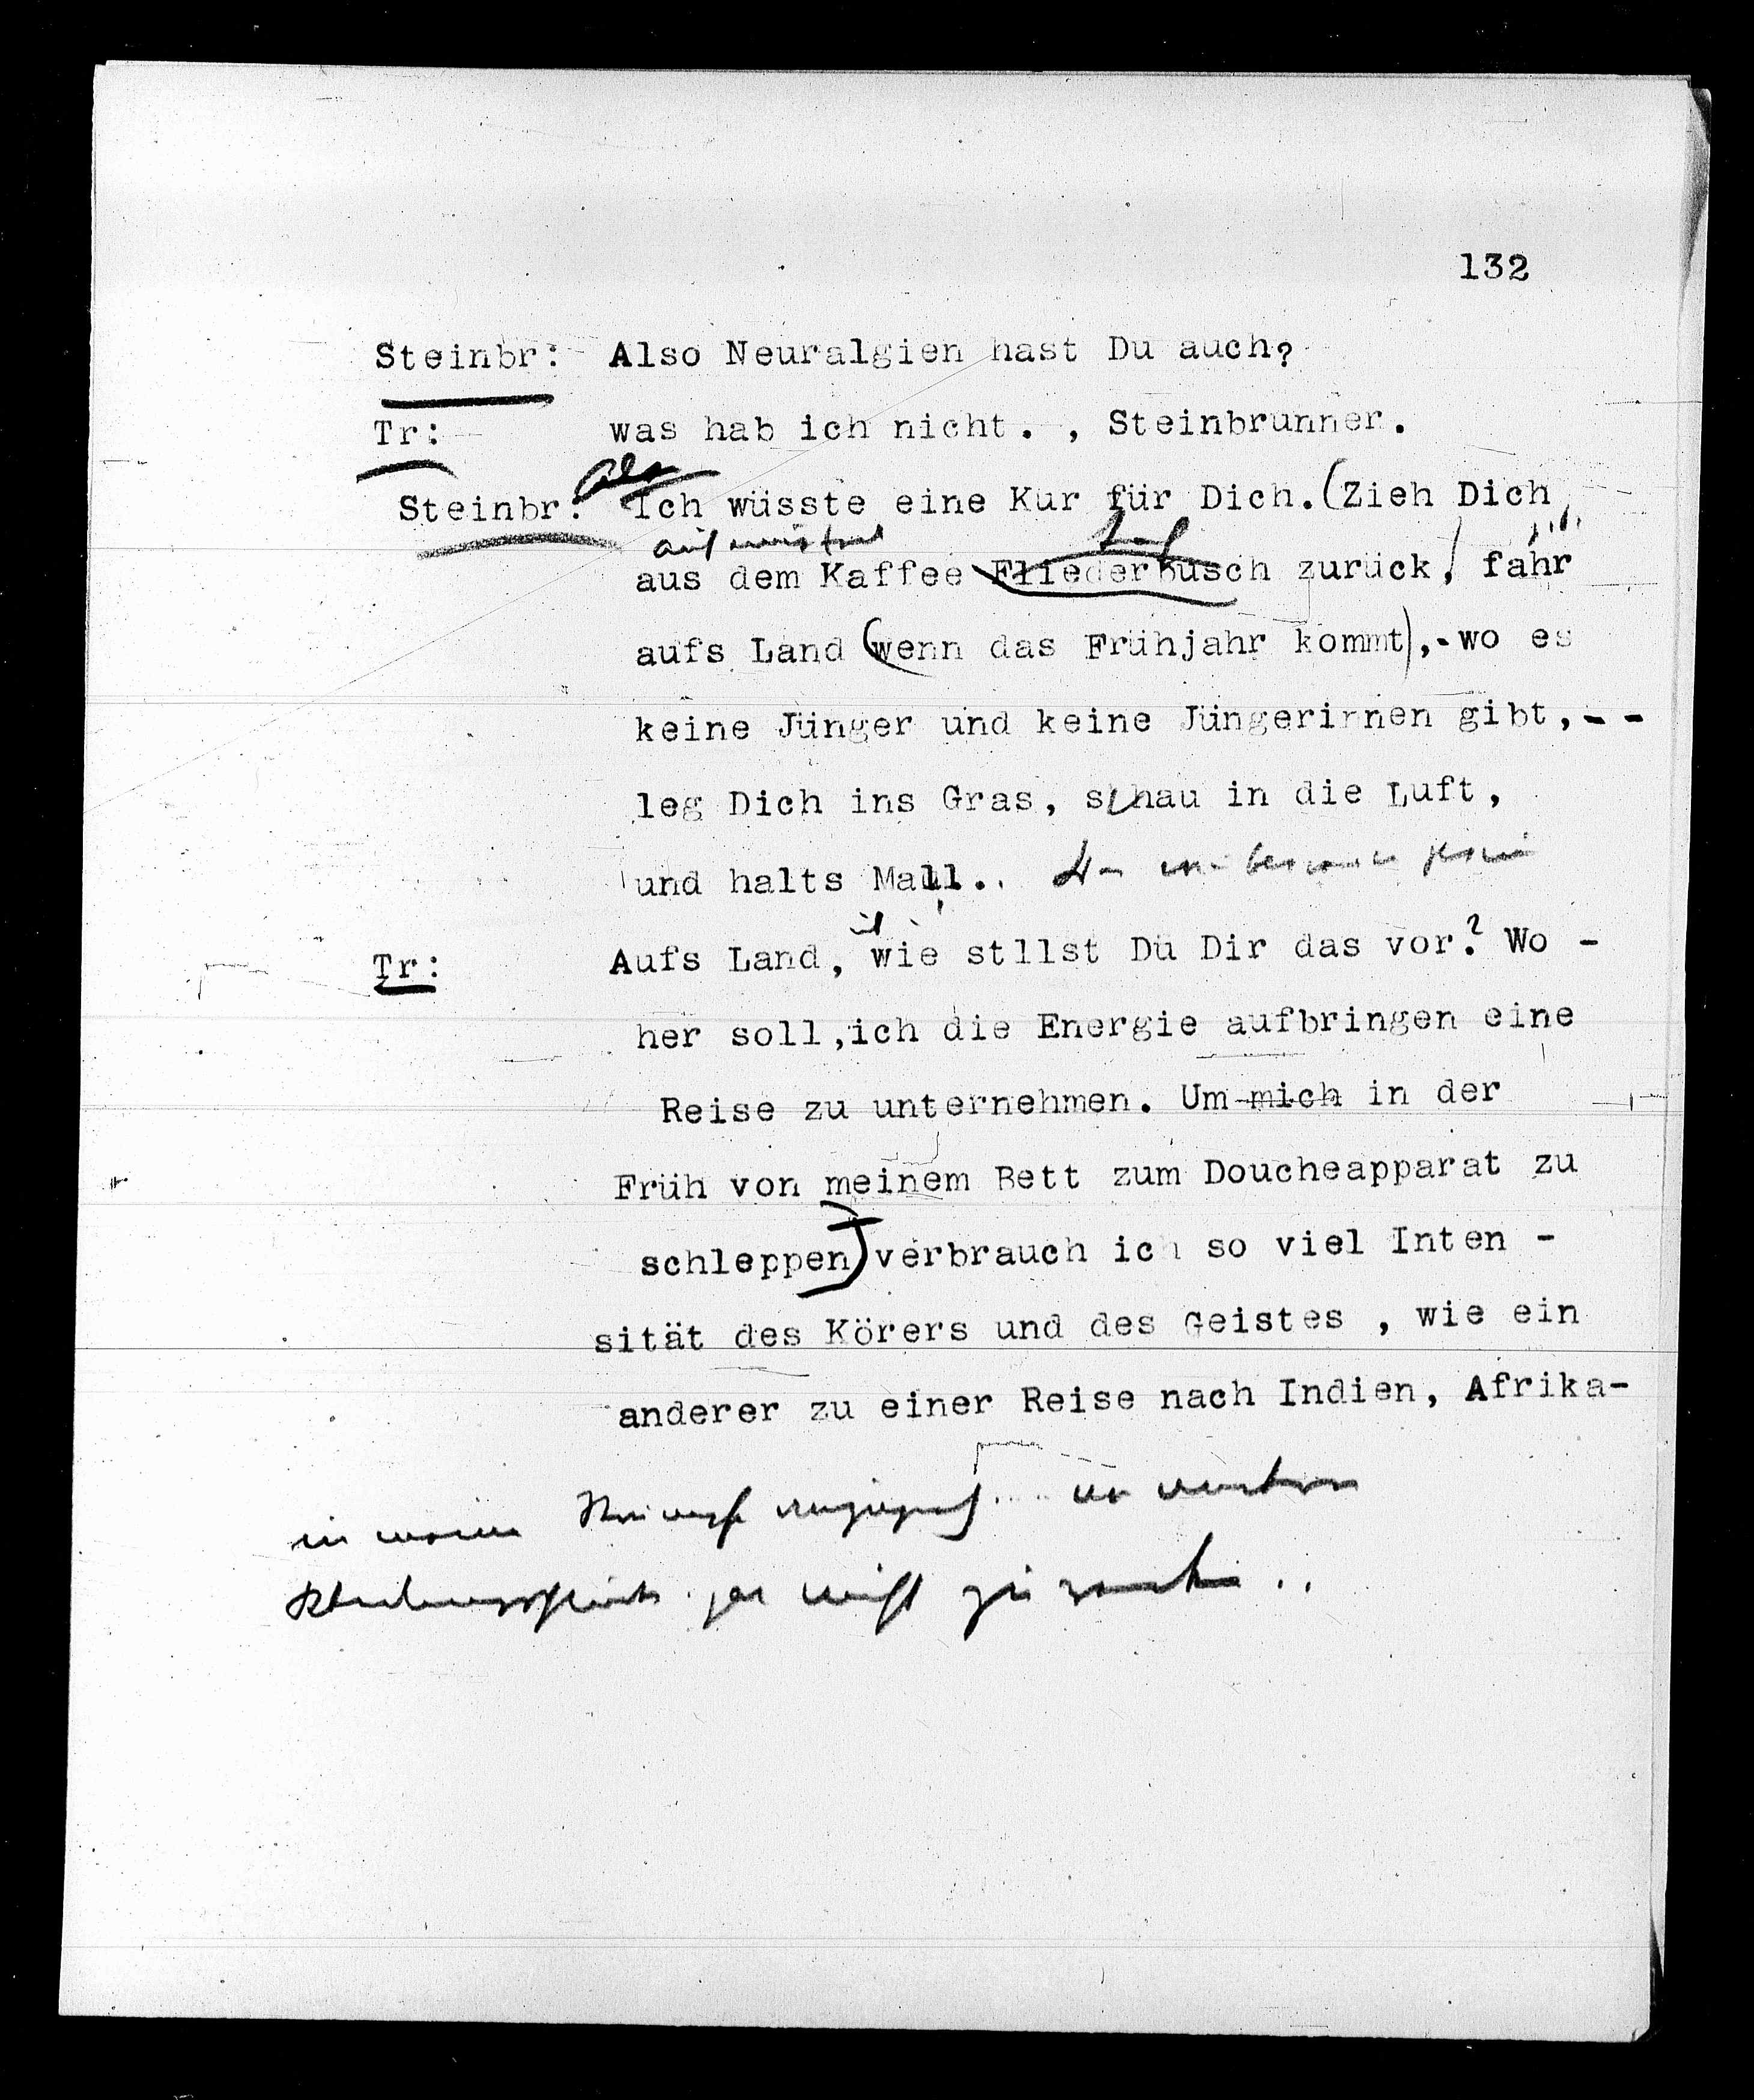 132
Steinbr: Also Neuralgien hast Du auch?
Tr: was hab ich nicht. , Steinbrunner.
Also
Steinbr: Ich wüsste eine Kur für Dich.(Zieh Dich
aus dem Kaffee Fliederbusch zurück, fahr
aufs Land (wenn das Frühjahr kommt),-wo es
keine Jünger und keine Jüngerinnen gibt,- -
leg Dich ins Gras, schau in die Luft,
und halts Maul..
Tr: Aufs Land, wie stllst Du Dir das vor? Wo -
her soll,ich die Energie aufbringen eine
Reise zu unternehmen. Um mich in der
Früh von meinem Bett zum Doucheapparat zu
schleppen) verbrauch ich so viel Inten -
sität des Körers und des Geistes , wie ein
anderer zu einer Reise nach Indien, Afrika-
gar nicht zu